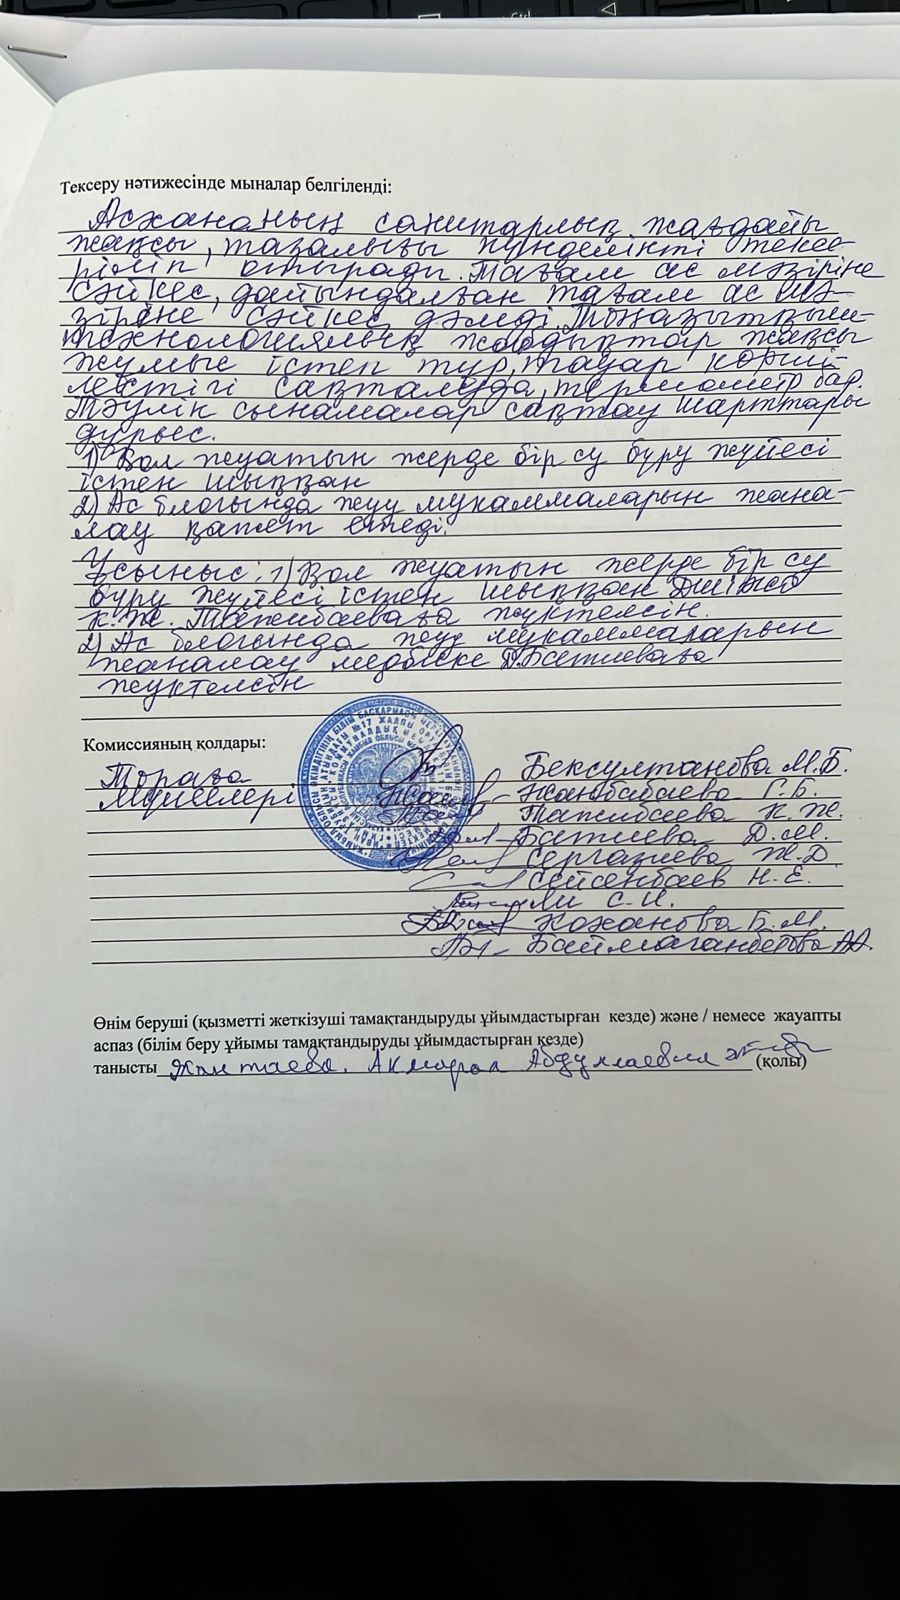 Ctrl
Тексеру нәтижесінде мыналар белгіленді:
Асхананың санитарлық жағдайы
жақсы, тазалығы күнделікті тексе-
ріліп отырады. Тағам ас мәзіріне
сәйкес, дайындалған тағам ас мә-
зіріне сәйкес, дәмді. Тоңазытқыш-
технологиялық жабдықтар жақсы
жұмыс істеп тұр, тауар көрші-
лестігі сақталуда, термометр бар.
Тәулік сынамалар сақтау шарттары
дұрыс.
1) Қол жуатын жерде бір су бұру жүйесі
істен шыққан
2) Ас блогында жуу мүкаммаларын жаңа-
лау қажет етеді.
Ұсыныс: 1) Қол жуатын жерде бір су
бұру жүйесі істен шыққан ДШІЖО
К.Ж. Тажибаеваға жүктелсін.
2) Ас блогында жуу мүкаммаларын
жаңалау медбике Д.Батиеваға
жүктелсін
Комиссияның қолдары:
Төраға Бексултанова М.Б.
Мүшелері Жанбабаева Г.Б.
Тажибаева К.Ж.
Батиева Д.М.
Сергазиева Ж.Д
Сейсенбаев Н.Е.
Ли С-И.
Кожанова Б.М.
Баймаганбетова АА.
Өнім беруші (қызметті жеткізуші тамақтандыруды ұйымдастырған кезде) және / немесе жауапты
аспаз (білім беру ұйымы тамақтандыруды ұйымдастырған кезде)
танысты Жантаева Акмарал Абдуллаевна (қолы)